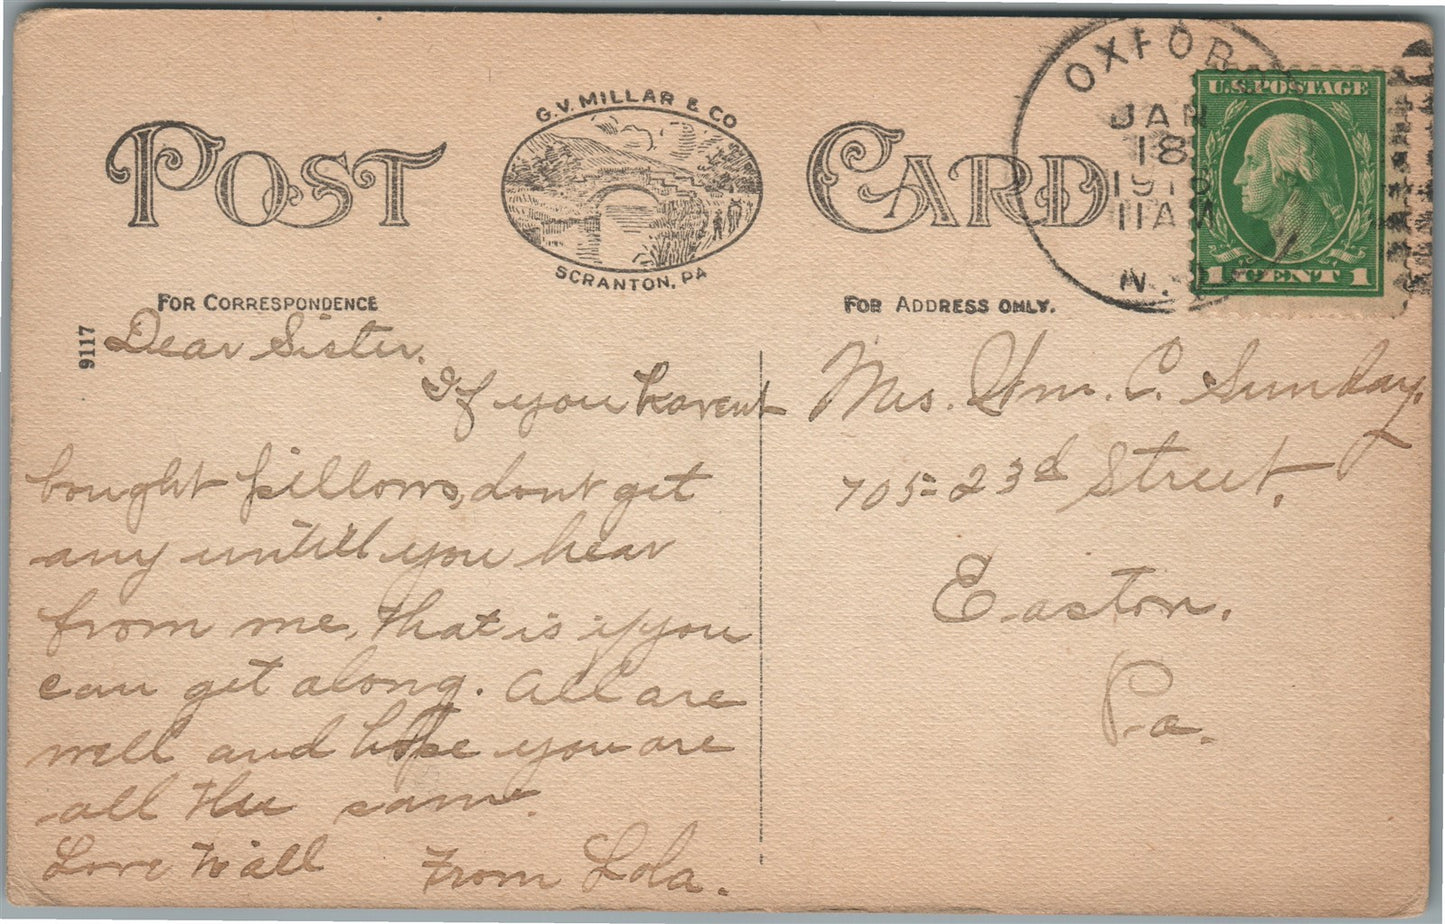 POST CARD
G.V. MILLAR & CO
SCRANTON, PA
FOR CORRESPONDENCE
FOR ADDRESS ONLY.
9117
OXFOR
JAN
18
11 A
N.
U.S. POSTAGE
1 CENT 1
Dear Sister.
If you havent
bought pillows, dont get
any untill you hear
from me, that is if you
can get along. All are
well and hope you are
all the same.
Love to all From Lola.
Mrs. Wm. C. Sunday.
705 = 23d Street.
Easton.
Pa.